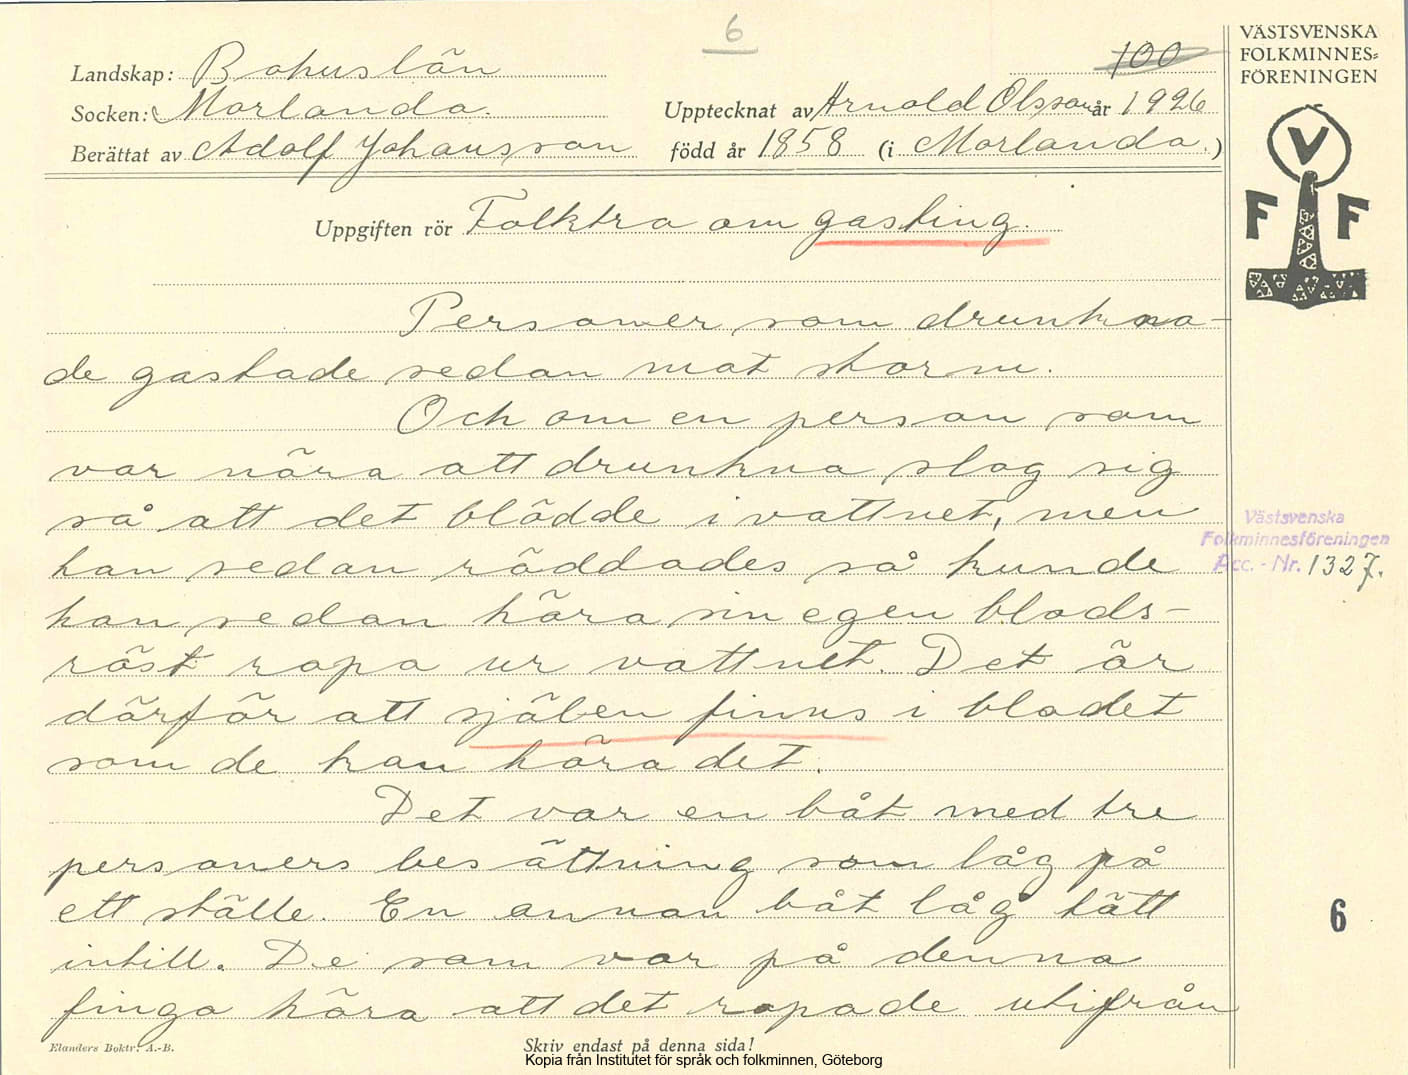 6
100
VÄSTSVENSKA
FOLKMINNES=
FÖRENINGEN
Landskap: Bohuslän
Socken: Morlanda.
Upptecknat av Arnold Olsson år 1926
Berättat av Adolf Johansson
född år 1858 (i Morlanda.)
V
F F
Uppgiften rör Folktro om gasting.
Personer som drunkna-
de gastade sedan mot storm.
Och om en person som
var nära att drunkna slog sig
så att det blödde i vattnet, men
han sedan räddades så kunde
han sedan höra sin egen blods-
röst ropa ur vattnet. Det är
därför att själen finns i blodet
som de kan höra det.
Det var en båt med tre
personers besättning som låg på
ett ställe. En annan båt låg tätt
intill. De som var på denna
finga höra att det ropade utifrån
Västsvenska
Folkminnesföreningen
Acc. - Nr. 1327.
6
Elanders Boktr. A.-B.
Skriv endast på denna sida!
Kopia från Institutet för språk och folkminnen, Göteborg